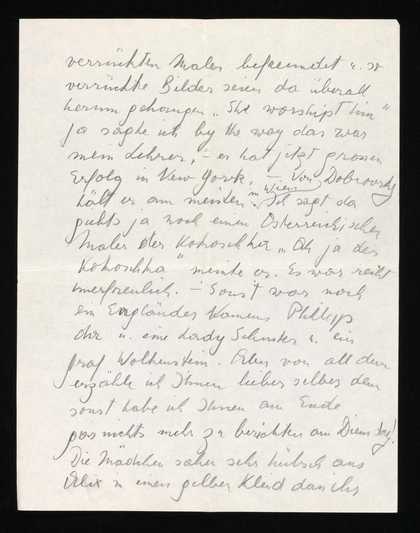 verrückten Maler befreundet u. so
verrückte Bilder seien da überall
herum gehangen „She worshipt him"
ja sagte ich by the way das war
mein Lehrer, – er hat jetzt grossen
Erfolg in New York, – Von Dobrovsky
hält er am meisten in Wien. Ich sagt da
gibts ja noch einen Österreichischen
Maler der Kokoschka „Oh ja der
Kokoschka" meinte er. Es war recht
unerfreulich. – Sonst war noch
ein Engländer Namens Phillips
da u. eine Lady Schuster u. ein
Graf Wolkenstein. Aber von all dem
erzähle ich Ihnen lieber selber denn
sonst habe ich Ihnen am Ende
gar nichts mehr zu berichten am Dienstag!
Die Mädchen sahen sehr hübsch aus
Alix in einem gelben Kleid das ihr